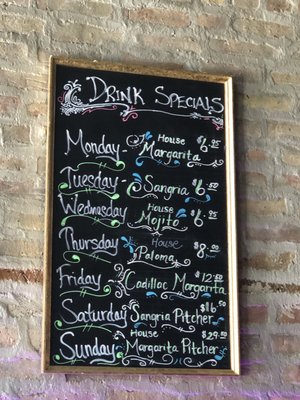 Drink Specials
Monday - House Margarita $6.95
Tuesday - Sangria $6.95
Wednesday House Mojito $6.95
Thursday House Paloma $8.00
Friday - Cadillac Margarita $12.50
Saturday Sangria Pitcher $16.50
Sunday - House Margarita Pitcher $29.50